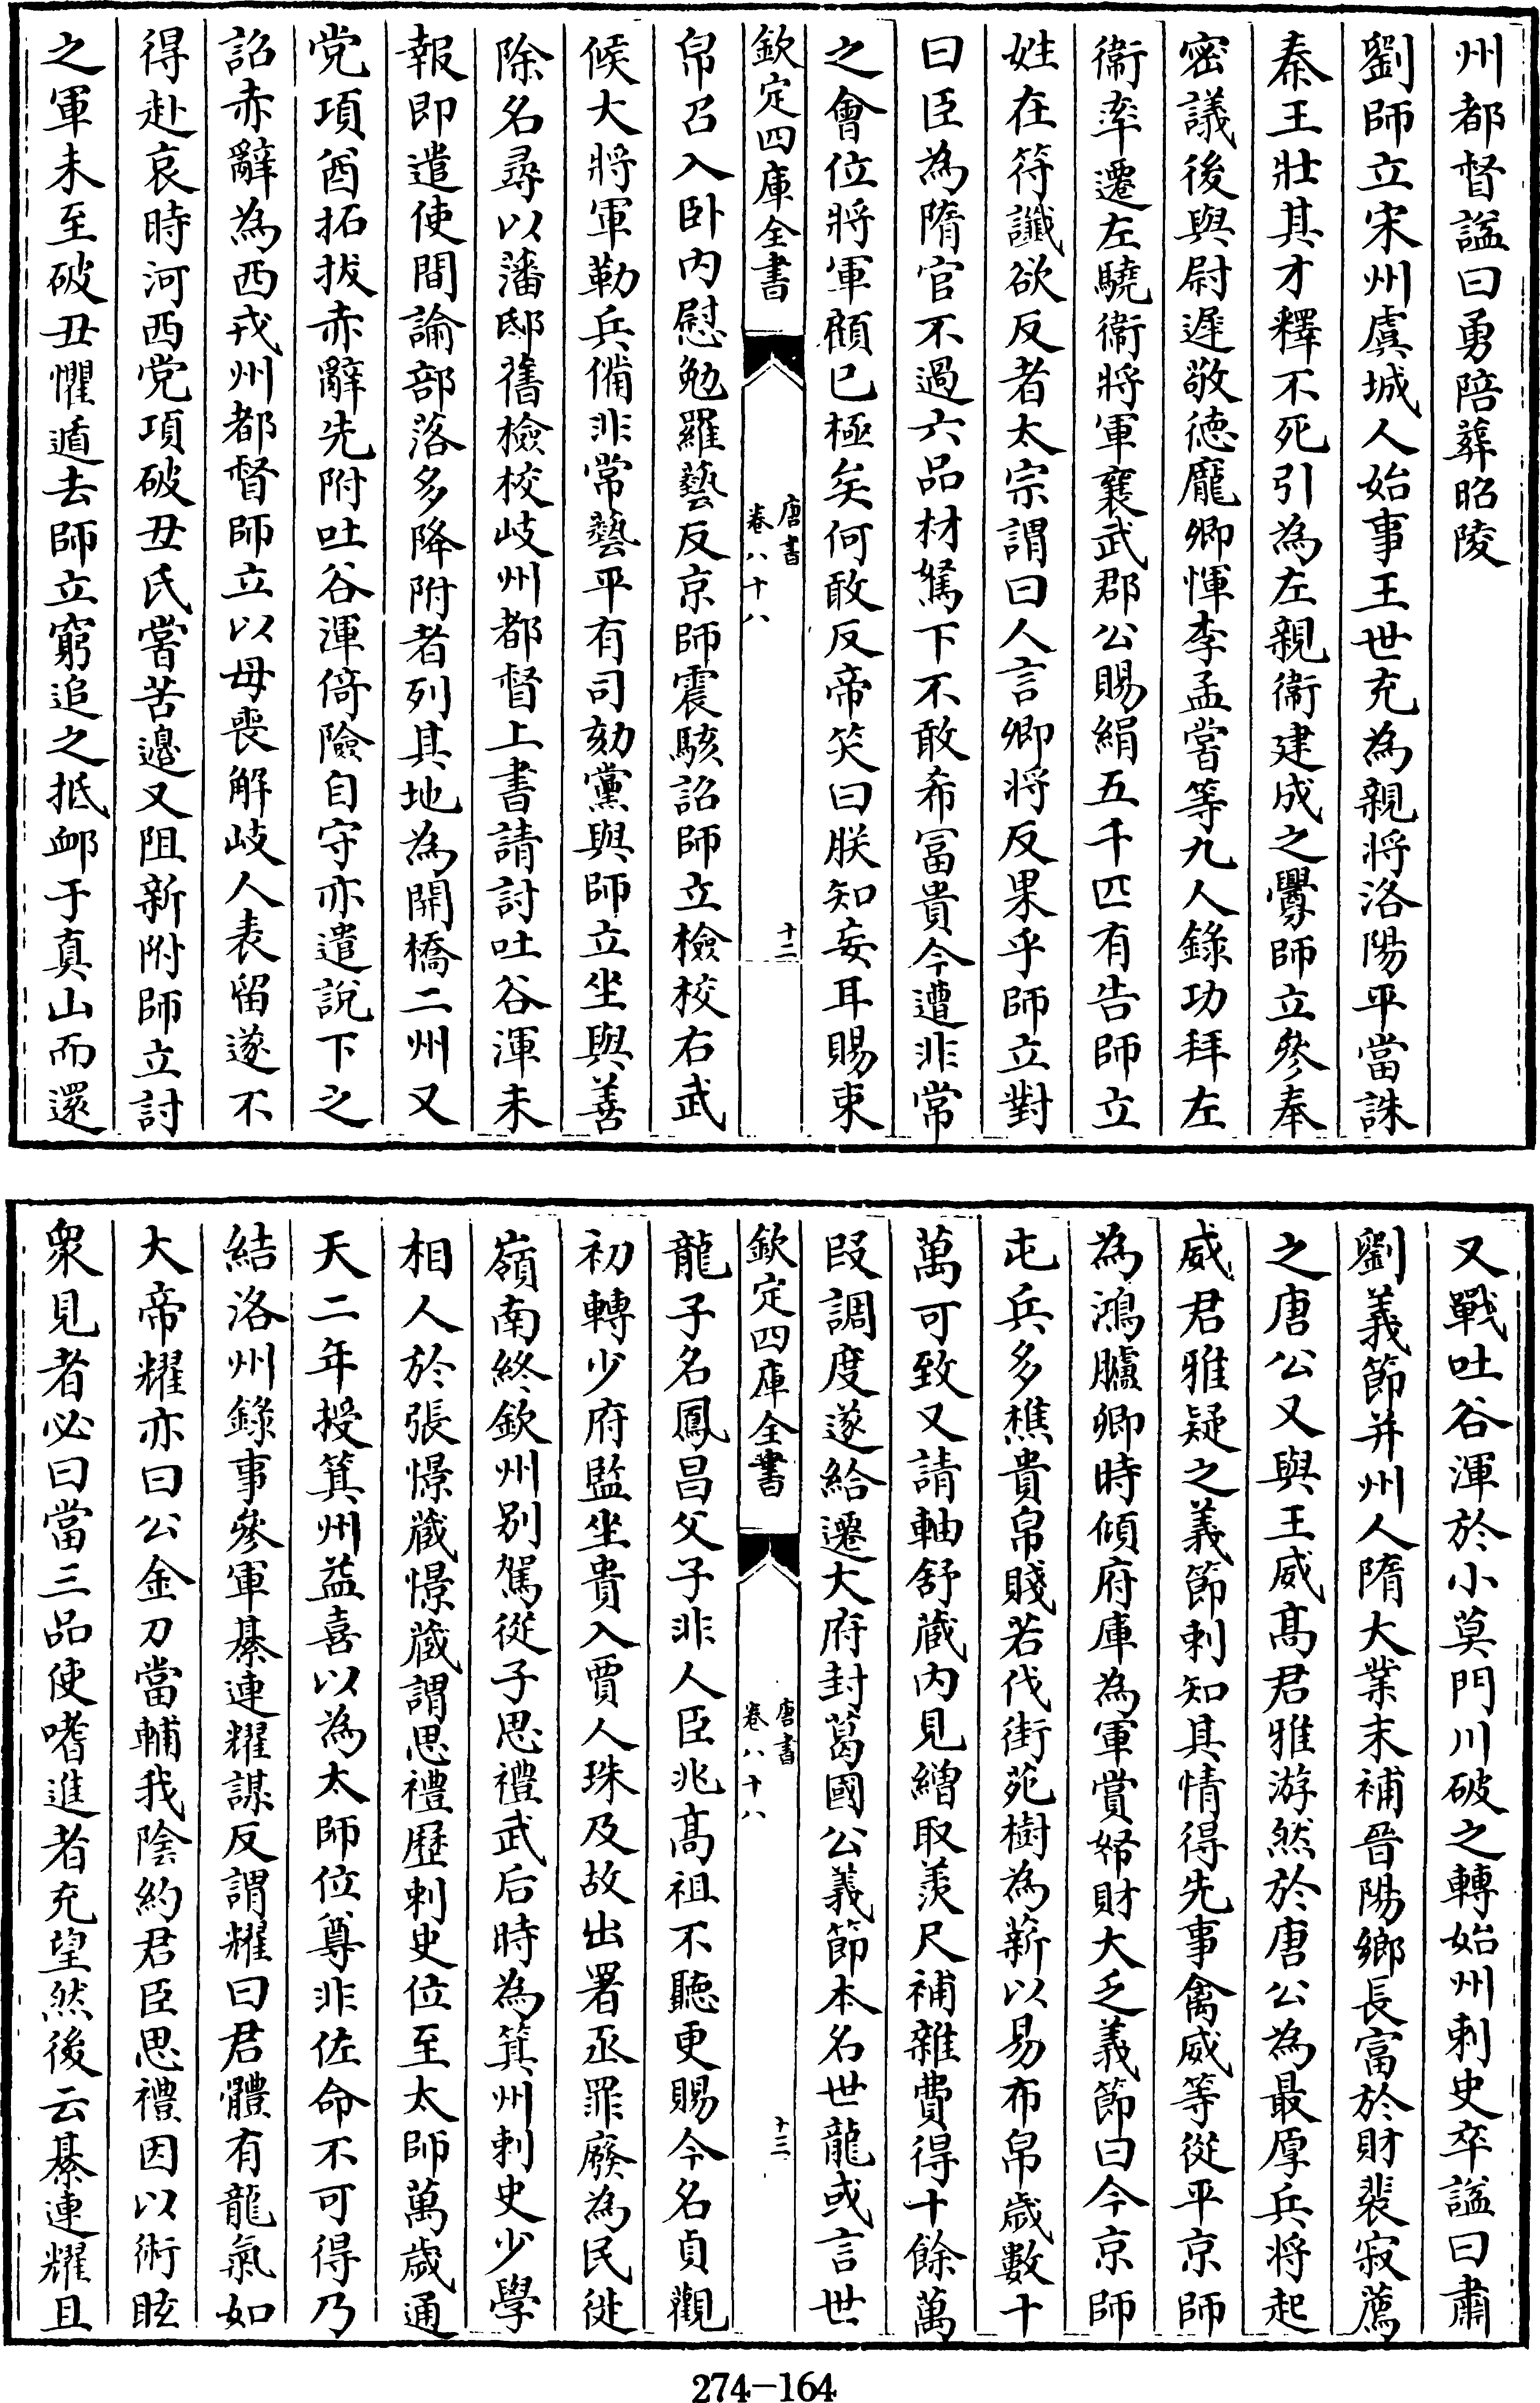 州都督諡曰勇陪葬昭陵
劉師立宋州虞城人始事王世充為親將洛陽平當誅
秦王壯其才釋不死引為左親衞建成之釁師立參奉
密議後與尉遲敬德龐卿惲李孟嘗等九人錄功拜左
衞率遷左驍衞將軍襄武郡公賜絹五千匹有告師立
姓在符讖欲反者太宗謂曰人言卿將反果乎師立對
曰臣為隋官不過六品材駑下不敢希冨貴今遭非常
之會位將軍顧已極矣何敢反帝笑曰朕知妄耳賜束
欽定四庫全書
唐書
卷八十八
十二
帛召入卧内慰勉羅藝反京師震駭詔師立檢校右武
候大將軍勒兵備非常藝平有司劾黨與師立坐與善
除名尋以藩邸舊檢校岐州都督上書請討吐谷渾未
報即遣使間諭部落多降附者列其地為開橋二州又
党項酋拓拔赤辭先附吐谷渾倚險自守亦遣說下之
詔赤辭為西戎州都督師立以母喪解岐人表留遂不
得赴哀時河西党項破丑氏嘗苦邊又阻新附師立討
之軍未至破丑懼遁去師立窮追之抵䘏于真山而還
又戰吐谷渾於小莫門川破之轉始州刺史卒諡曰肅
劉義節并州人隋大業末補晉陽鄉長富於財裴寂薦
之唐公又與王威髙君雅游然於唐公為最厚兵将起
威君雅疑之義節刺知其情得先事禽威等從平京師
為鴻臚卿時傾府庫為軍賞帑財大乏義節曰今京師
屯兵多樵貴帛賤若伐街苑樹為薪以易布帛歲數十
萬可致又請軸舒藏内見繒取羡尺補雜費得十餘萬
段調度遂給遷大府封葛國公義節本名世龍或言世
欽定四庫全書
唐書
卷八十八
十三
龍子名鳳昌父子非人臣兆髙祖不聽更賜今名貞觀
初轉少府監坐貴入賈人珠及故出署丞罪廢為民徙
嶺南終欽州别駕從子思禮武后時為箕州刺史少學
相人於張憬藏憬藏謂思禮歷刺史位至太師萬歲通
天二年授箕州益喜以為太師位尊非佐命不可得乃
結洛州錄事參軍綦連耀謀反謂耀曰君體有龍氣如
大帝耀亦曰公金刀當輔我陰約君臣思禮因以術眩
衆見者必曰當三品使嗜進者充望然後云綦連耀且
274-164